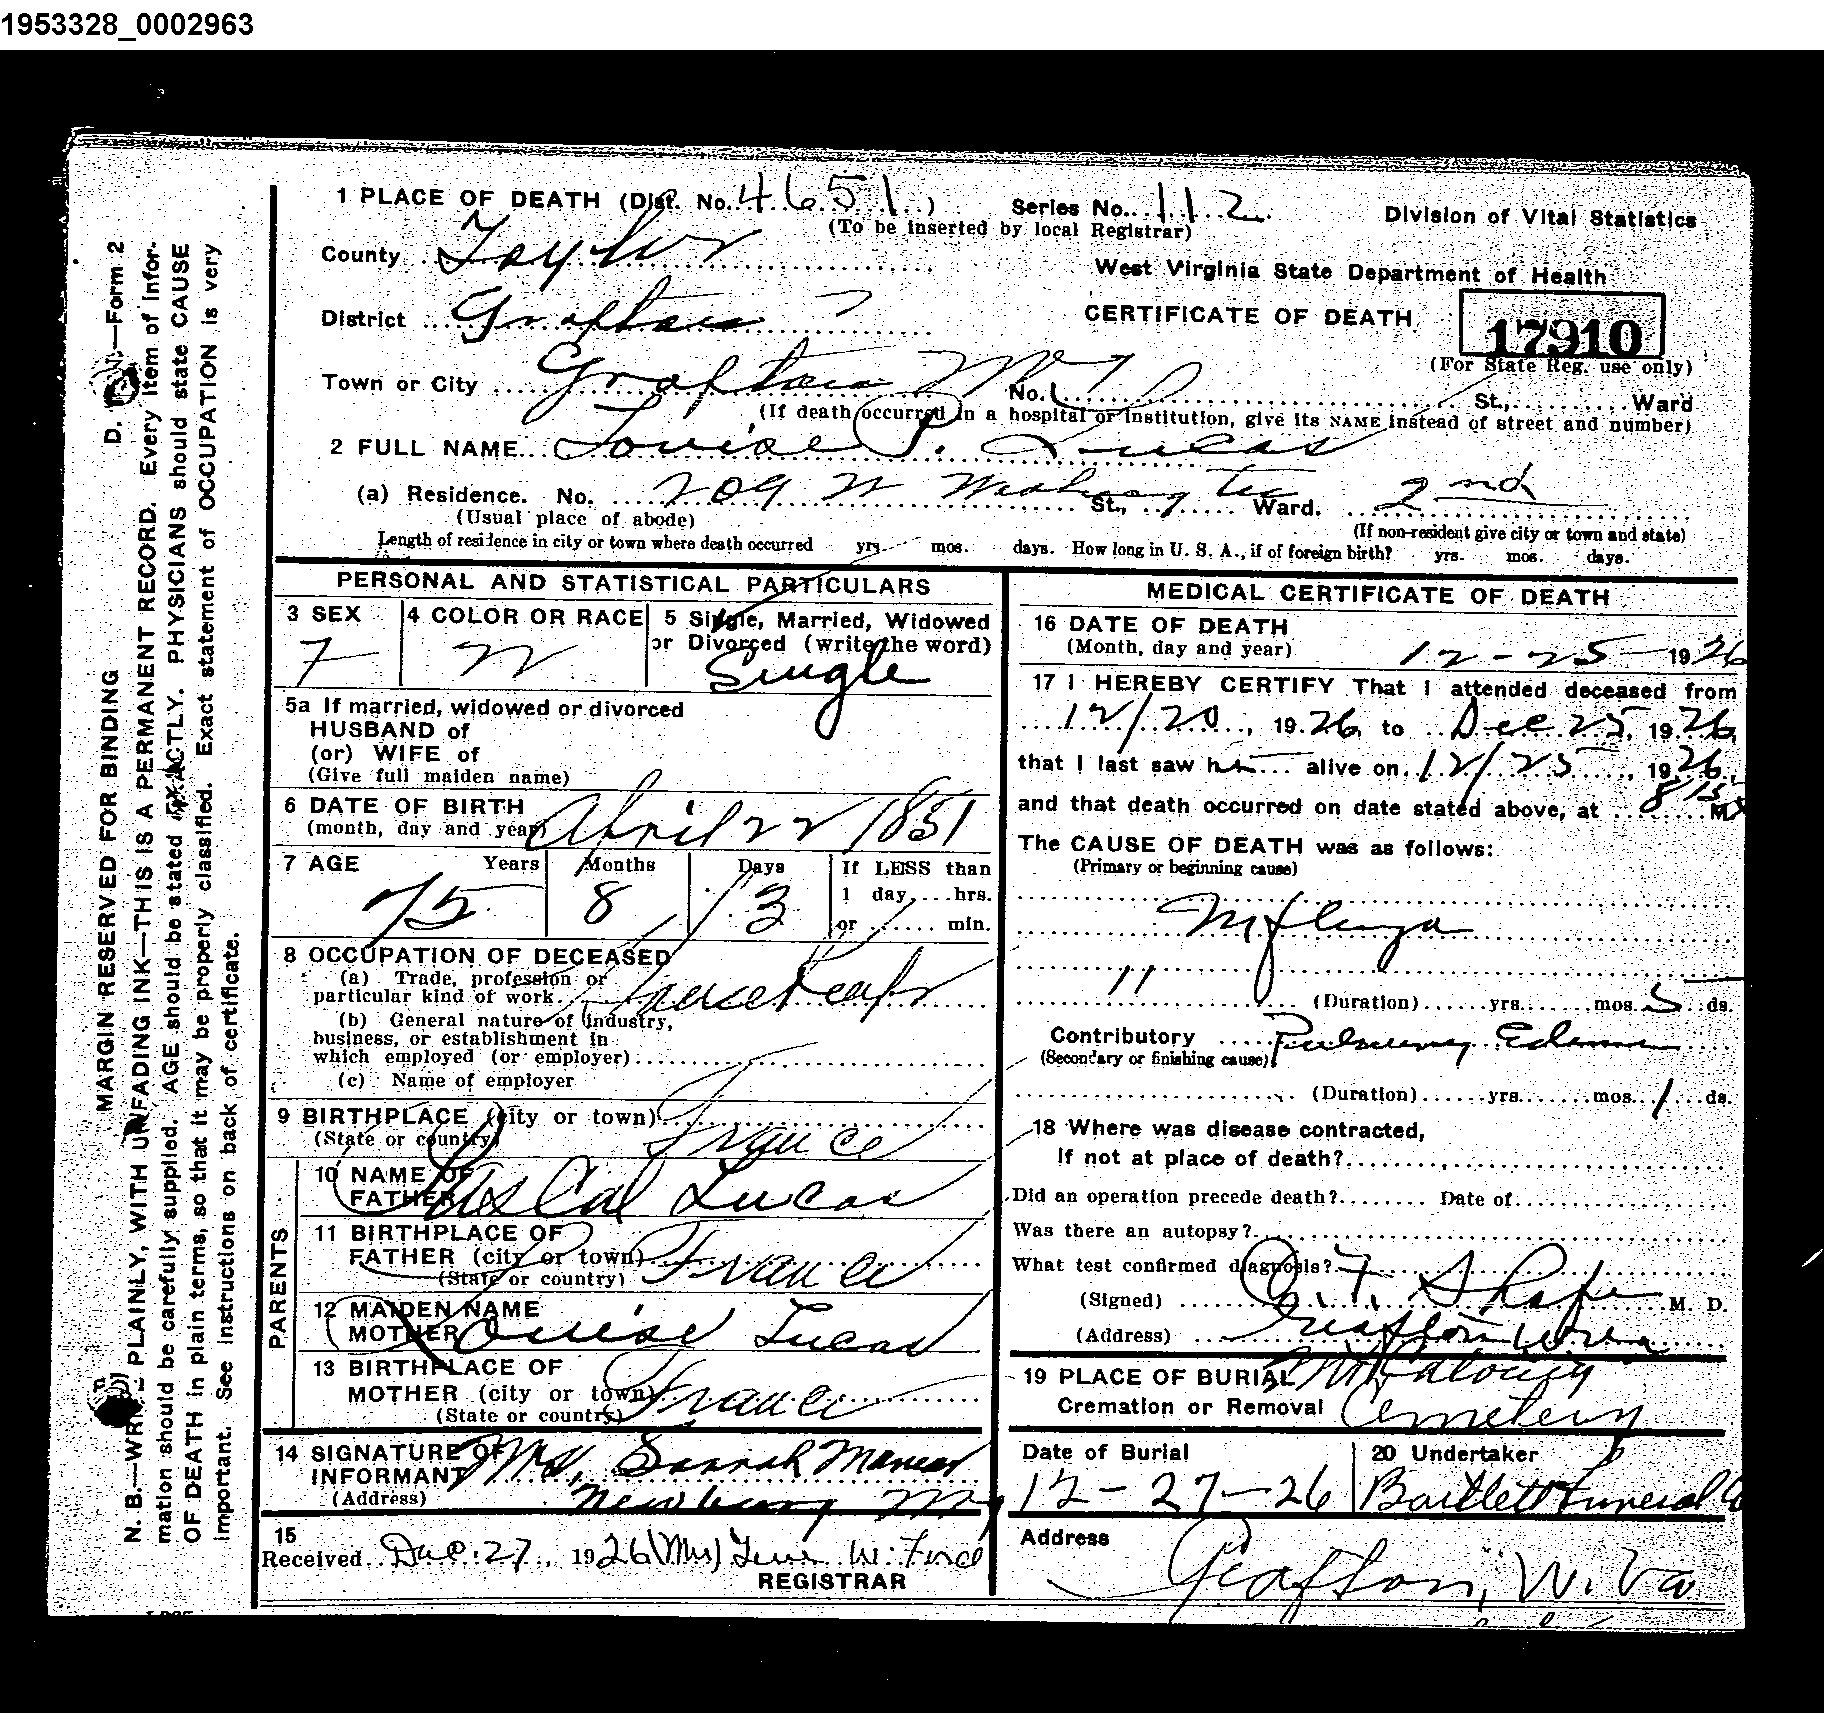 1953328_0002963
1 PLACE OF DEATH (Dist. No. 4651) Series No. 112 Division of Vital Statistics
(To be inserted by local Registrar)
County Taylor
West Virginia State Department of Health
District Grafton
CERTIFICATE OF DEATH 17910
(For State Reg. use only)
Town or City Grafton No. St., Ward
(If death occurred in a hospital or institution, give its NAME instead of street and number)
2 FULL NAME Louise P. Lucas
(a) Residence. No. 209 W Washington St., Ward. 2nd
(Usual place of abode) (If non-resident give city or town and state)
Length of residence in city or town where death occurred yrs. mos. days. How long in U. S. A., if of foreign birth? yrs. mos. days.
PERSONAL AND STATISTICAL PARTICULARS
3 SEX 4 COLOR OR RACE 5 Single, Married, Widowed
or Divorced (write the word)
F W Single
5a If married, widowed or divorced
HUSBAND of
(or) WIFE of
(Give full maiden name)
6 DATE OF BIRTH
(month, day and year) April 22 1851
7 AGE Years Months Days If LESS than
1 day, hrs.
or min.
75 8 3
8 OCCUPATION OF DECEASED
(a) Trade, profession or
particular kind of work
(b) General nature of industry,
business, or establishment in
which employed (or employer)
(c) Name of employer
9 BIRTHPLACE (city or town)
(State or country) France
PARENTS
10 NAME OF
FATHER Pascal Lucas
11 BIRTHPLACE OF
FATHER (city or town)
(State or country) France
12 MAIDEN NAME
MOTHER Louise Lucas
13 BIRTHPLACE OF
MOTHER (city or town)
(State or country) France
14 SIGNATURE OF
INFORMANT Mrs.
(Address) Newburg
15
Received Dec. 27, 1926 (Mrs) W. Ford
REGISTRAR
MEDICAL CERTIFICATE OF DEATH
16 DATE OF DEATH
(Month, day and year) 12-25-1926
17 I HEREBY CERTIFY That I attended deceased from
12/20, 1926, to Dec 25, 1926,
that I last saw h alive on 12/25, 1926,
and that death occurred on date stated above, at 8/15 M
The CAUSE OF DEATH was as follows:
(Primary or beginning cause)
Influenza
11
(Duration) yrs. mos. 5 ds.
Contributory Pulmonary Edema
(Secondary or finishing cause)
(Duration) yrs. mos. 1 ds.
18 Where was disease contracted,
if not at place of death?
Did an operation precede death? Date of
Was there an autopsy?
What test confirmed diagnosis?
(Signed) M. D.
(Address) Grafton W Va
19 PLACE OF BURIAL
Cremation or Removal Cemetery
Date of Burial 20 Undertaker
12-27-26 Bartlett Funeral Co
Address
Grafton, W. Va
MARGIN RESERVED FOR BINDING D. —Form 2
N. B.—WRITE PLAINLY, WITH UNFADING INK—THIS IS A PERMANENT RECORD. Every item of infor-
mation should be carefully supplied. AGE should be stated EXACTLY. PHYSICIANS should state CAUSE
OF DEATH in plain terms, so that it may be properly classified. Exact statement of OCCUPATION is very
important. See instructions on back of certificate.